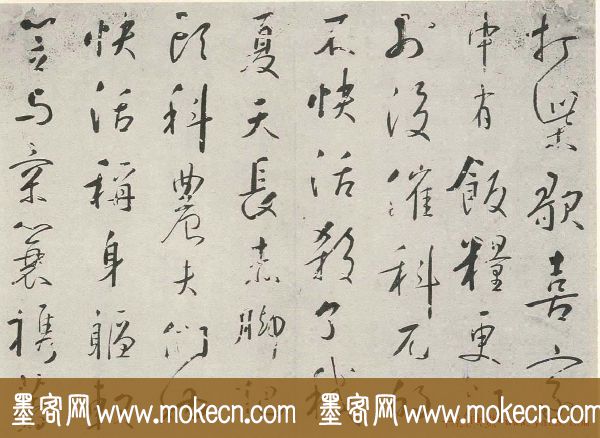 打柴歌喜家
中有飯糧更
別沒催科
不快活殺了我
夏天長赤腳
頭科農夫們
快活稱身軀
笠與蓑衣
墨客网 www.mokecn.com 墨客网 www.mokecn.com